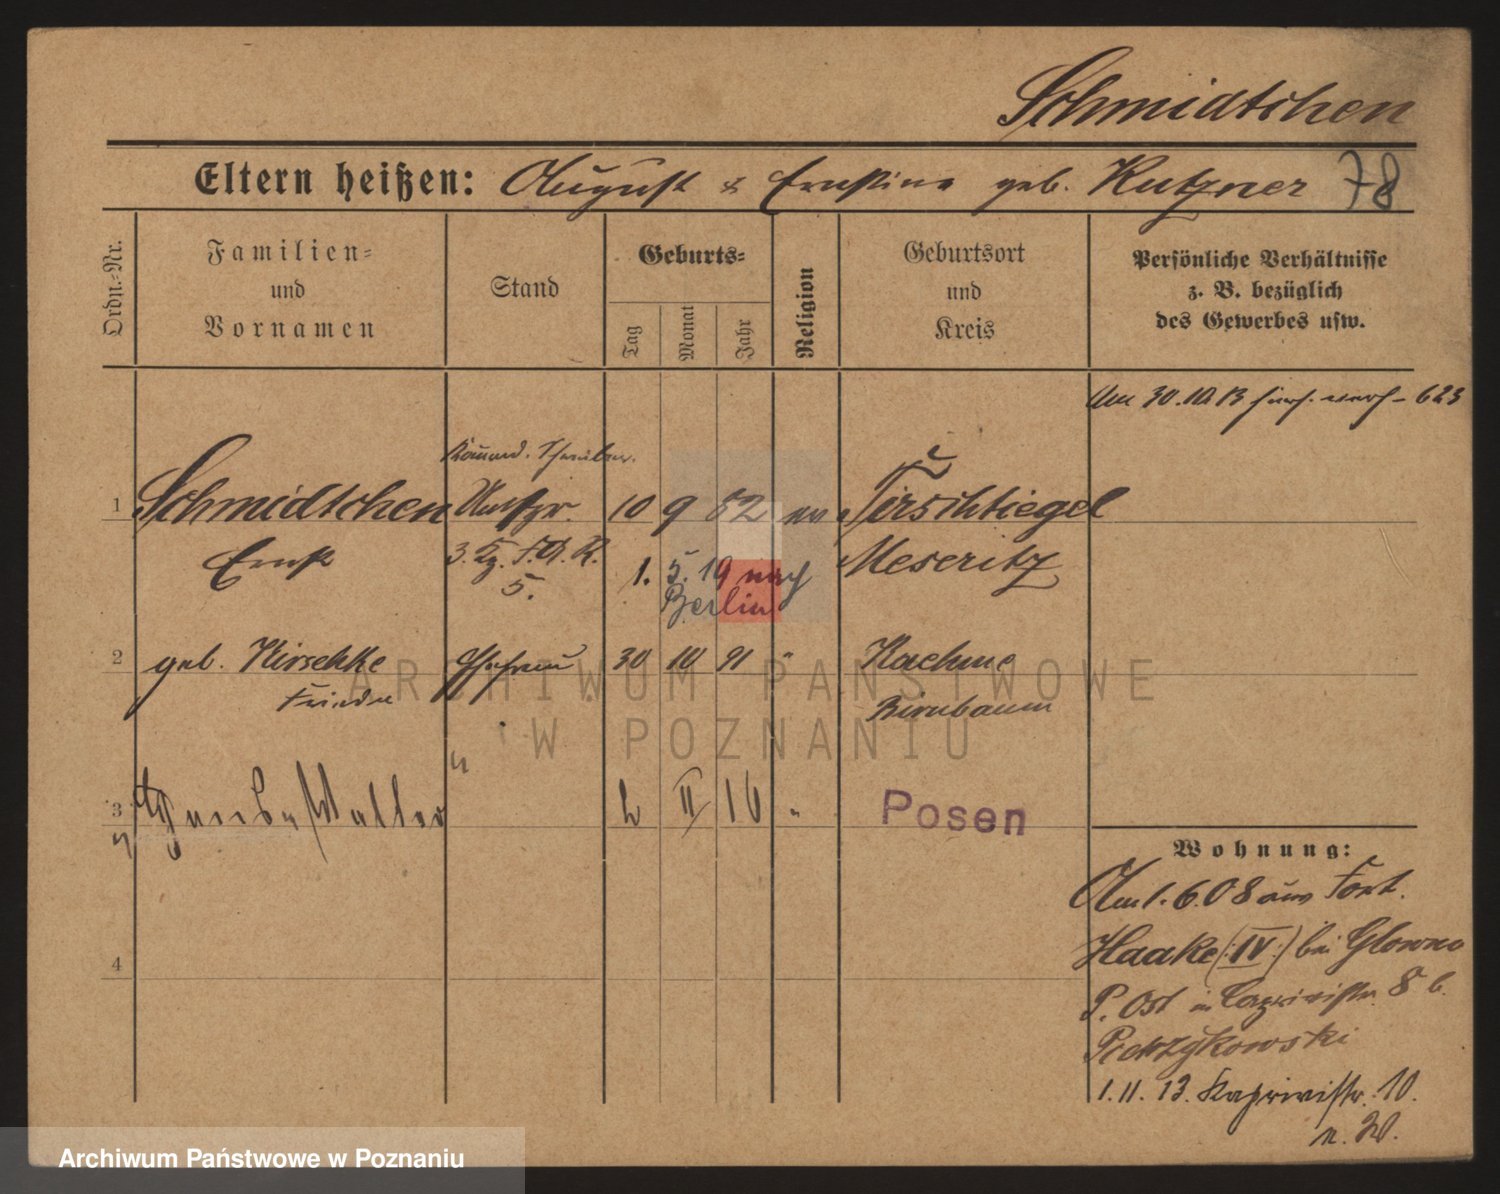 Schmidtchen
Eltern heißen: August & Ernstine geb. Kutzner 78
Ordn.-Nr.
Familien- und Vornamen
Stand
Geburts-
Tag
Monat
Jahr
Religion
Geburtsort und Kreis
Persönliche Verhältnisse z. B. bezüglich des Gewerbes usw.
Am 30.10.13 623
1 Schmidtchen 10 9 82 ev Tirschtiegel
Ernst Meseritz
5.
1. 5. 19 nach
Berlin
2 geb. Kirschke Ehefrau 30 10 91 " Kachme
Frieda Birnbaum
3 Walter 2 II 16 " Posen
4
Wohnung:
Am 1.6.08 aus Fort.
Haake (:IV:) bei Glowno
P. Ost in Caprivistr. 8 b.
Pietrzykowski
1.11.13. Kaprivistr. 10.
n. W.
ARCHIWUM PAŃSTWOWE
W POZNANIU
Archiwum Państwowe w Poznaniu